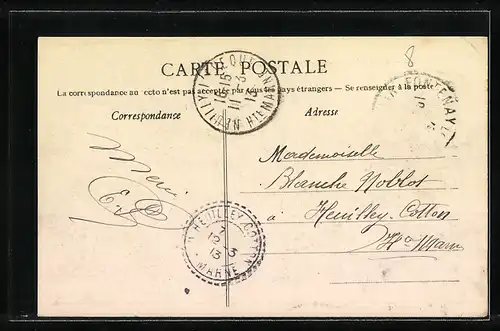 8
CARTE POSTALE
La correspondance au recto n'est pas acceptée par tous les pays étrangers — Se renseigner à la poste
Correspondance
Adresse
Merci
Mademoiselle
Blanche Noblot
à Heuilley-Cotton
Hte Marne
HEUILLEY-COTTON
7
12-3
13
MARNE
FONTENAY